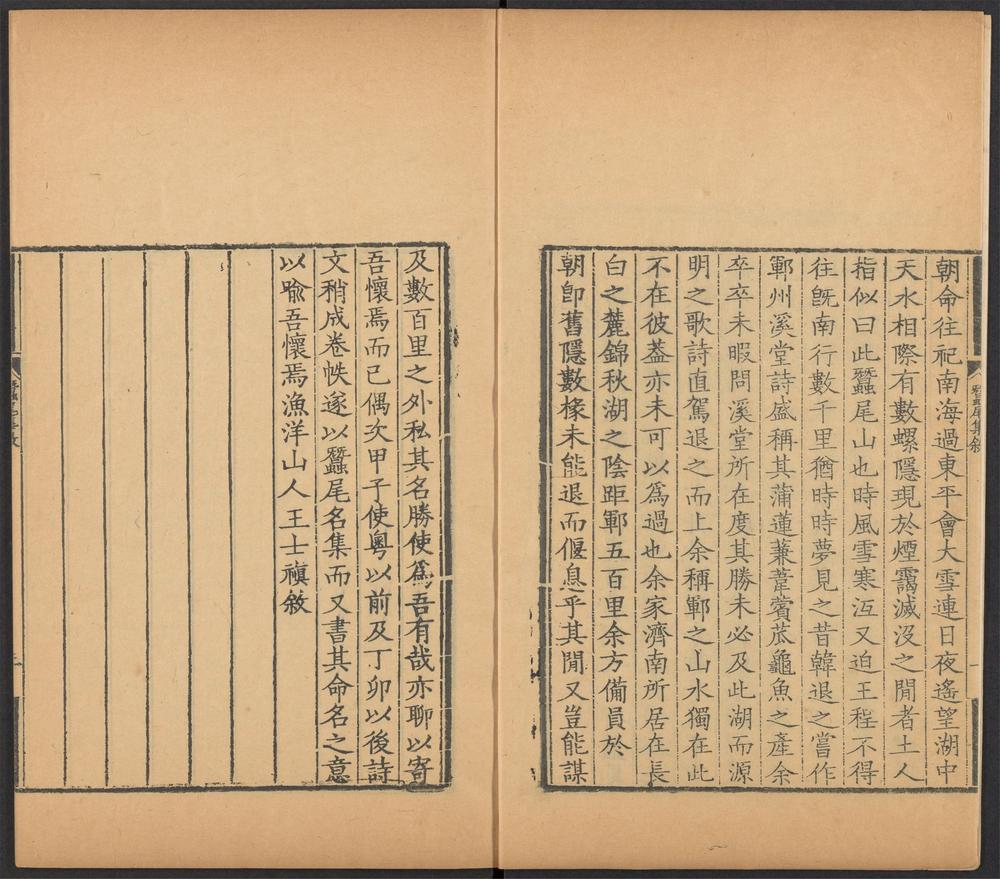 朝命往祀南海過東平會大雪連日夜遙望湖中
天水相際有數螺隱現於煙靄滅沒之閒者土人
指似曰此蠶尾山也時風雪寒沍又迫王程不得
往旣南行數千里猶時時夢見之昔韓退之嘗作
鄆州溪堂詩盛稱其蒲蓮蒹葦薲苽龜魚之產余
卒卒未暇問溪堂所在度其勝未必及此湖而源
明之歌詩直駕退之而上余稱鄆之山水獨在此
不在彼葢亦未可以爲過也余家濟南所居在長
白之麓錦秋湖之陰距鄆五百里余方備員於
朝卽舊隱數椽未能退而偃息乎其閒又豈能謀
蠶尾集敘
一
及數百里之外私其名勝使爲吾有哉亦聊以寄
吾懷焉而已偶次甲子使粵以前及丁卯以後詩
文稍成卷帙遂以蠶尾名集而又書其命名之意
以喩吾懷焉漁洋山人王士禛敘